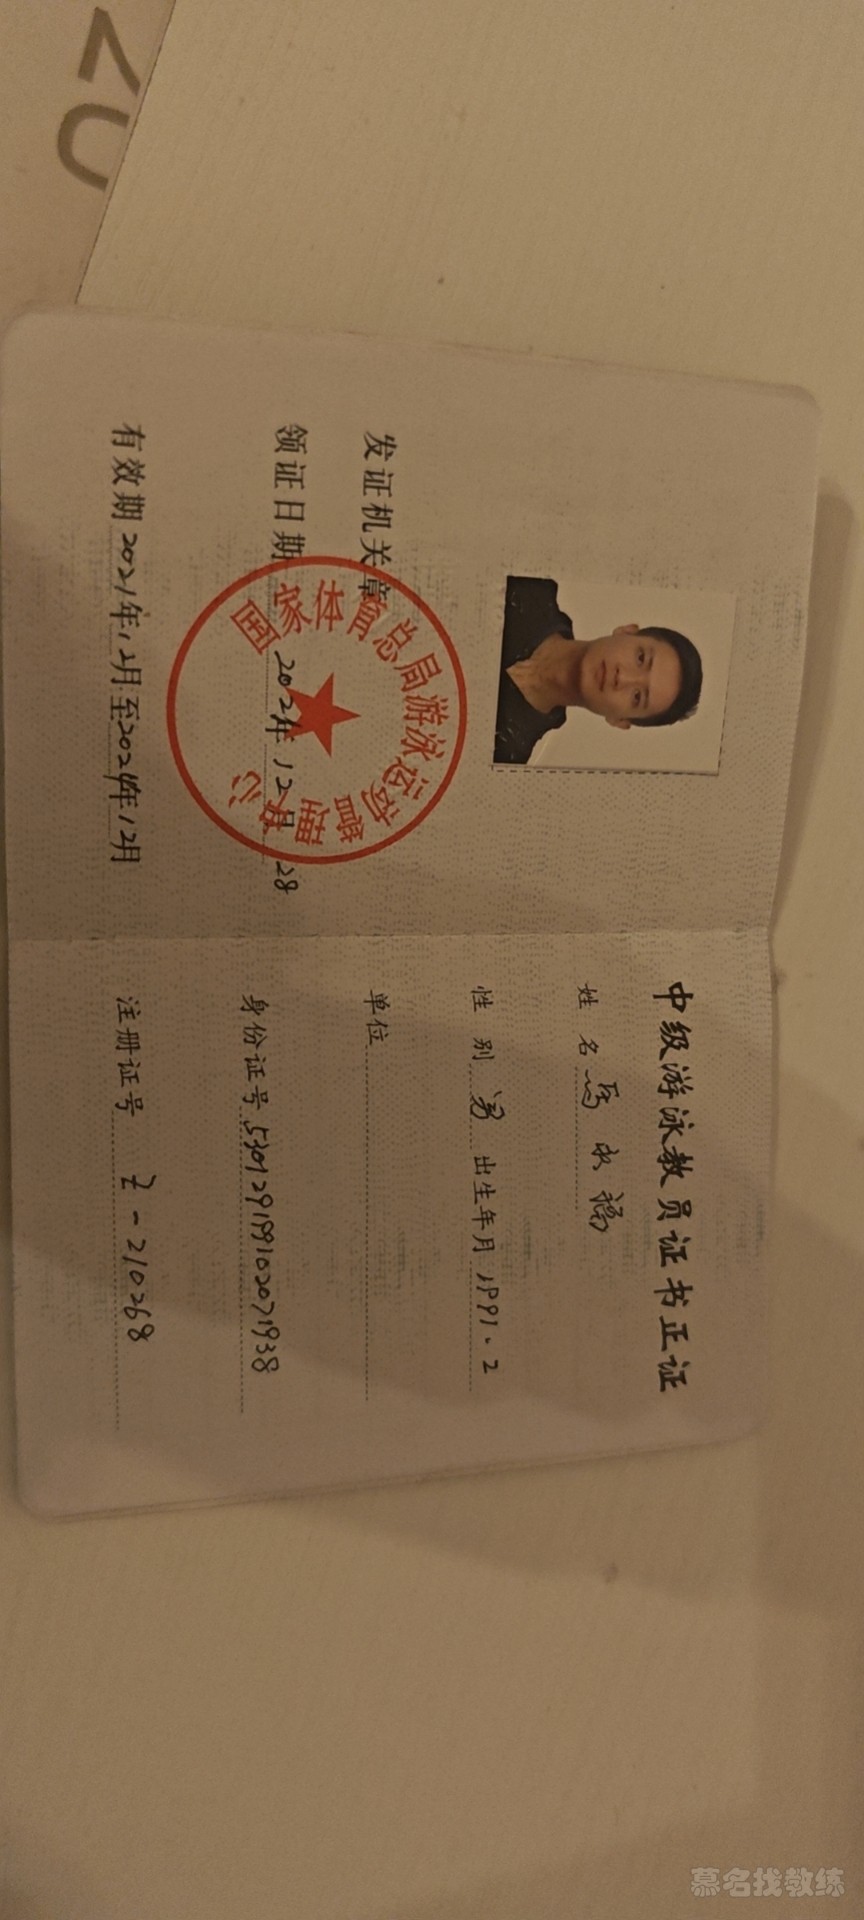 中级游泳教员证书正证
姓 名 马永福
性 别 男 出生年月 1991.2
单位
身份证号 530129199102071938
注册证号 Z-210268
发证机关章
国家体育总局游泳运动管理中心
领证日期 2021年12月28
有效期 2021年12月至2024年12月
慕名找教练